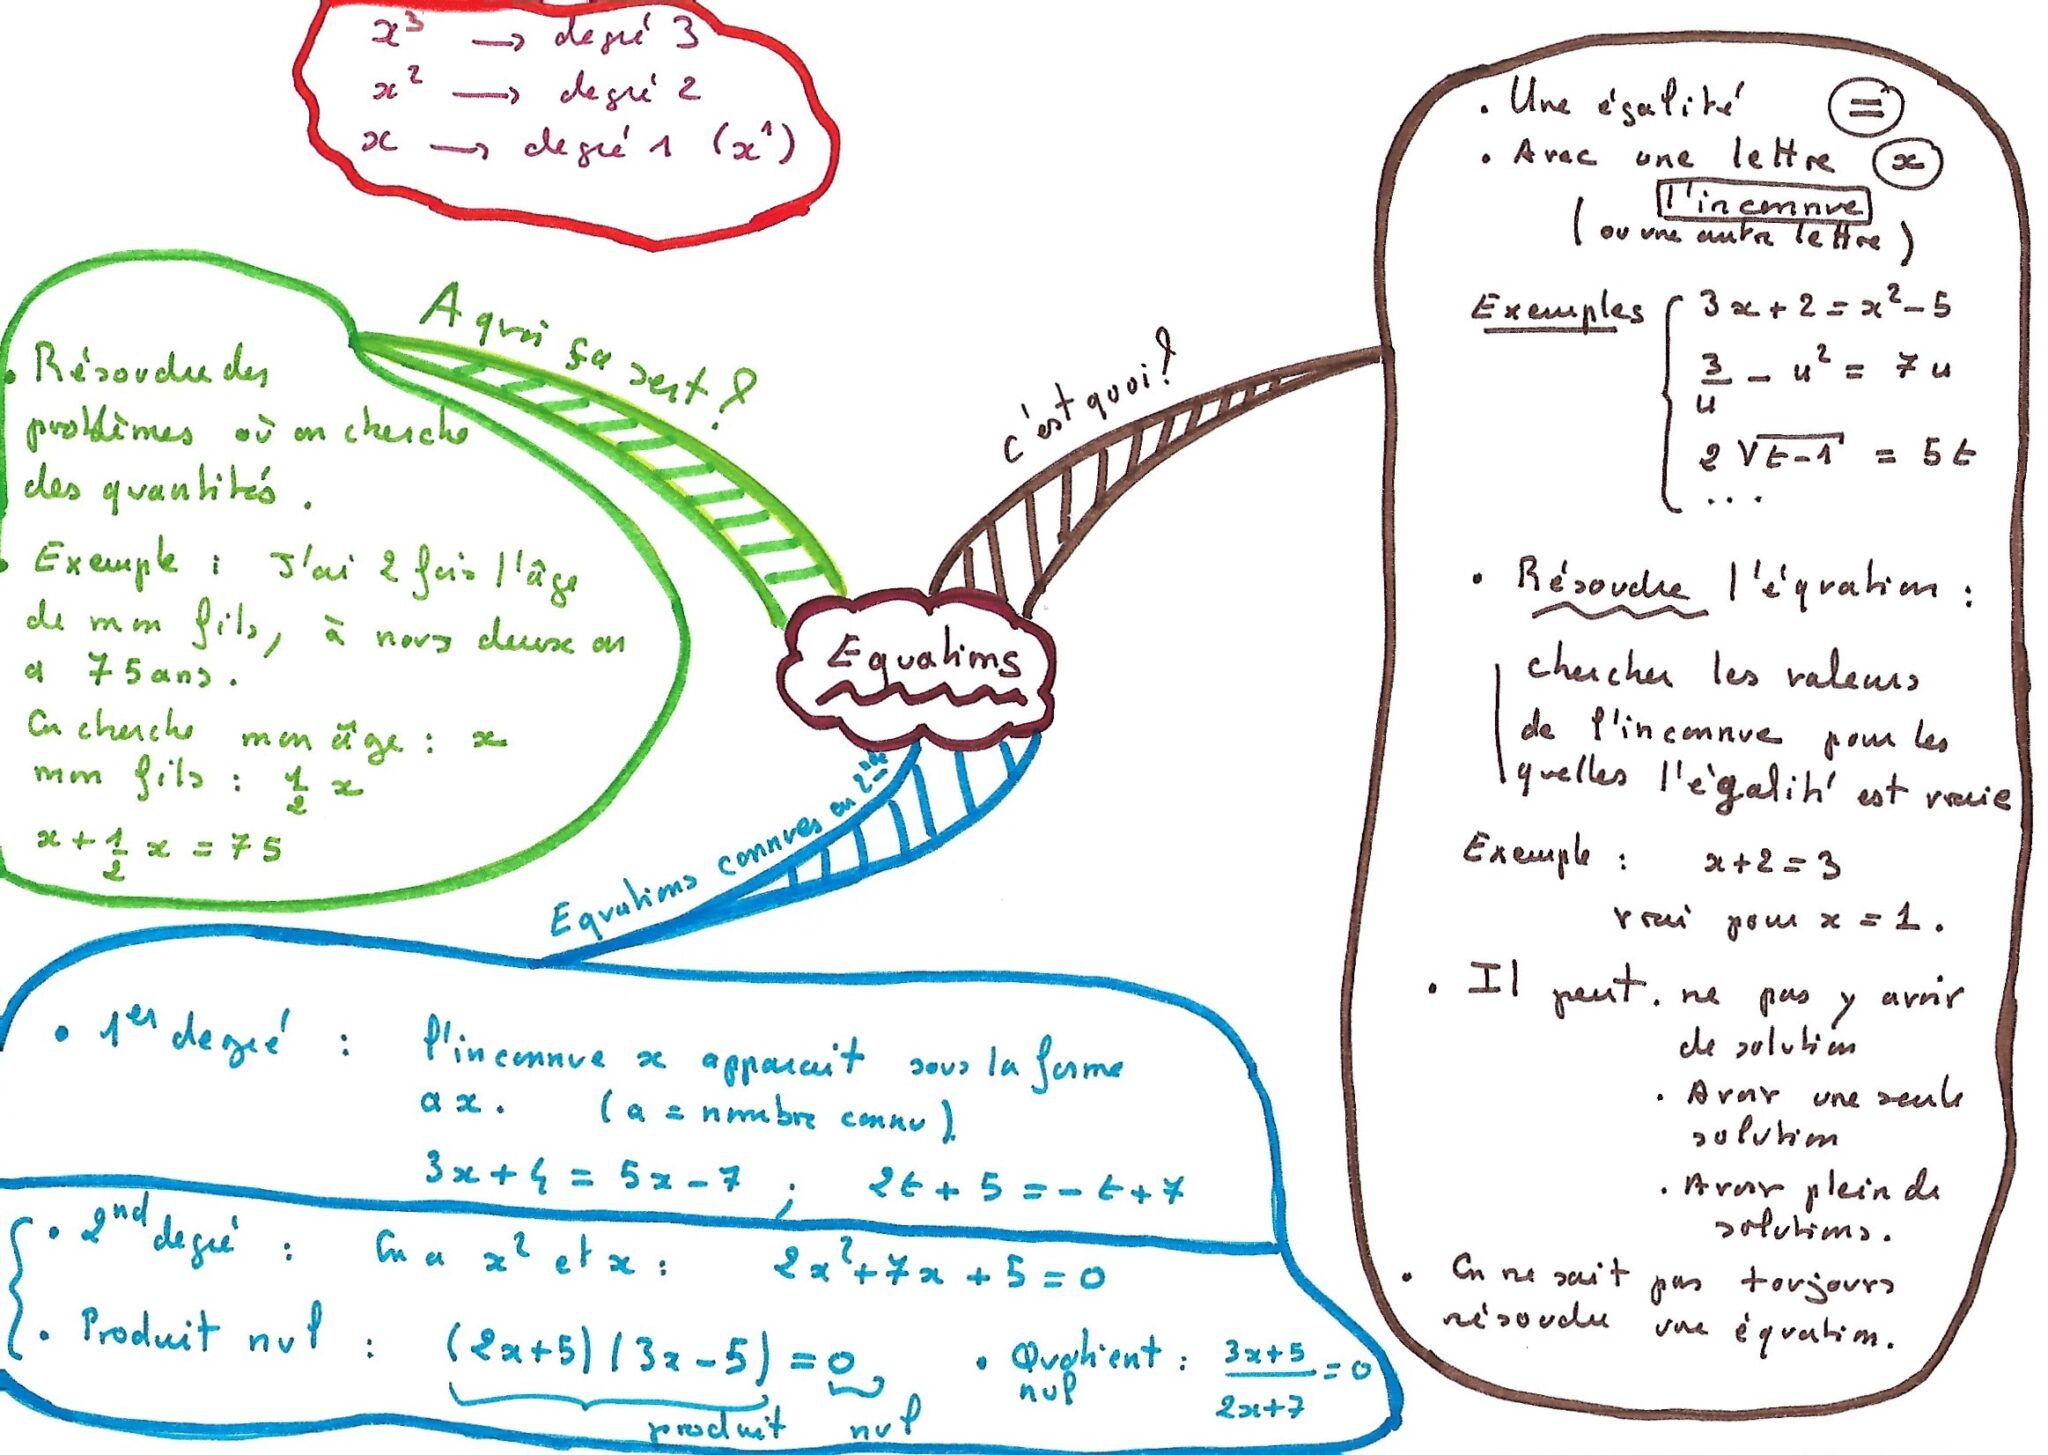 x³ → degré 3
x² → degré 2
x → degré 1 (x¹)
A quoi ça sert ?
• Résoudre des
problèmes où on cherche
des quantités.
• Exemple : J'ai 2 fois l'âge
de mon fils, à nous deux on
a 75 ans.
On cherche mon âge : x
mon fils : 1/2 x
x + 1/2 x = 75
Equations
c'est quoi ?
• Une égalité =
• Avec une lettre x
l'inconnue
(ou une autre lettre)
Exemples { 3x + 2 = x² - 5
3/u - u² = 7u
2√(t-1) = 5t
...
• Résoudre l'équation :
chercher les valeurs
de l'inconnue pour les
quelles l'égalité est vraie
Exemple : x + 2 = 3
vrai pour x = 1.
• Il peut • ne pas y avoir
de solution
• Avoir une seule
solution
• Avoir plein de
solutions.
• On ne sait pas toujours
résoudre une équation.
Equations connues en 2nde
• 1er degré : l'inconnue x apparait sous la forme
ax. (a = nombre connu)
3x + 4 = 5x - 7 ; 2t + 5 = -t + 7
• 2nd degré : On a x² et x : 2x² + 7x + 5 = 0
• Produit nul : (2x+5)(3x-5) = 0
produit nul
• Quotient : (3x+5)/(2x+7) = 0
nul